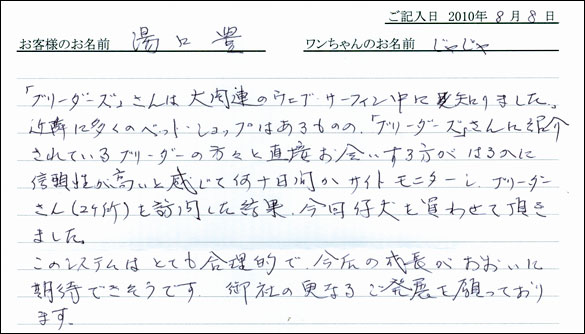 ご記入日 2010年 8月 8日
お客様のお名前 湯口 豊 ワンちゃんのお名前 じゃじゃ
「ブリーダーズ」さんは犬関連のウェブ・サーフィン中に見知りました。
近隣に多くのペット・ショップはあるものの、「ブリーダーズ」さんに紹介
されているブリーダーの方々と直接お会いする方がはるかに
信頼性が高いと感じて何十日間かサイトモニターし、ブリーダー
さん(2ケ所)を訪問した結果、今回仔犬を買わせて頂き
ました。
このシステムはとても合理的で、今后の成長がおおいに
期待できそうです。御社の更なるご発展を願っており
ます。